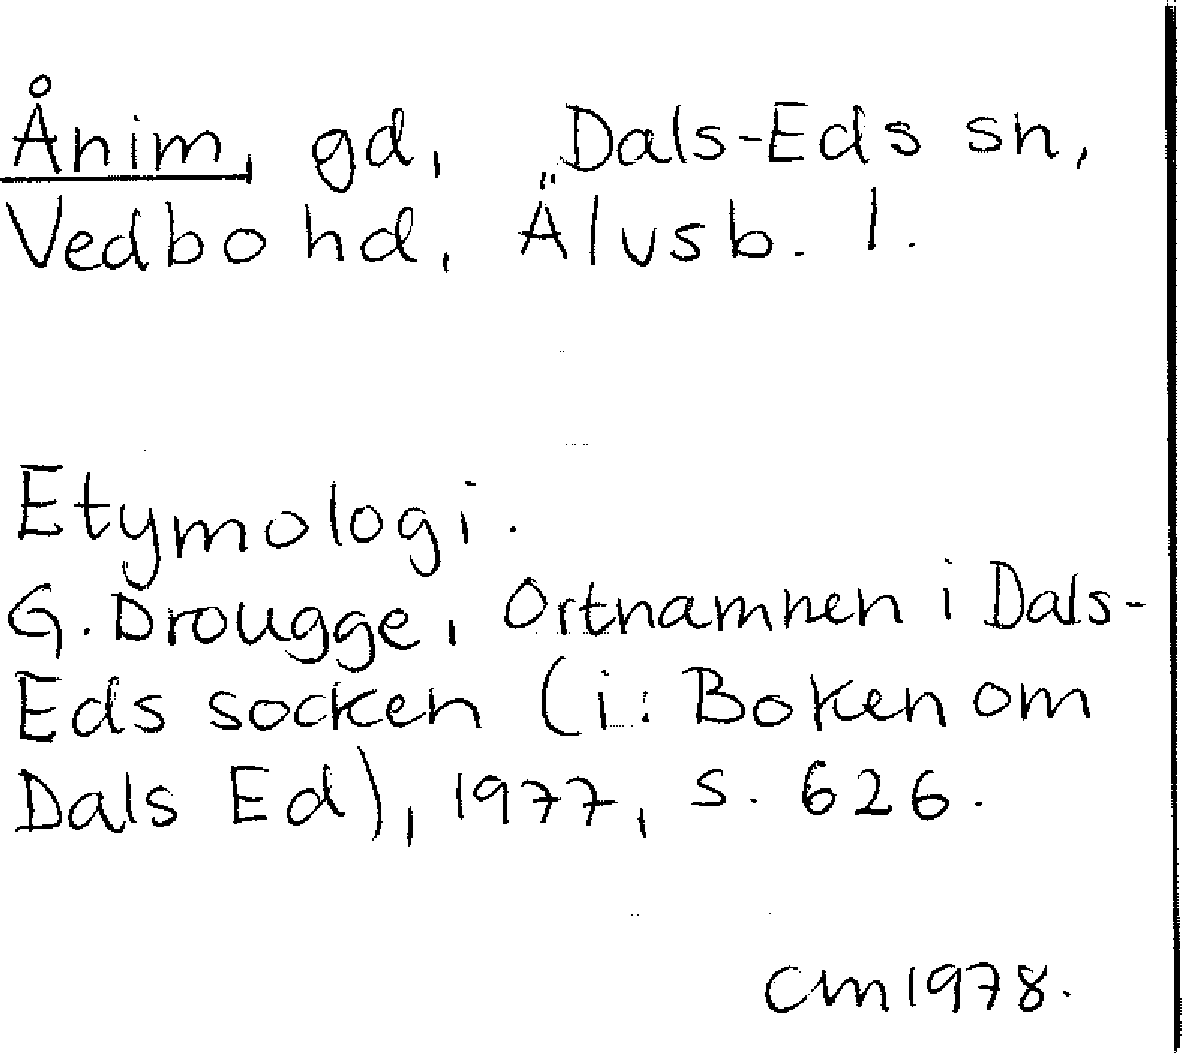 Ånim, gd, Dals-Eds sn,
Vedbo hd, Älvsb. l.
Etymologi.
G. Drougge, Ortnamnen i Dals-
Eds socken (i: Boken om
Dals Ed), 1977, s. 626.
CM 1978.